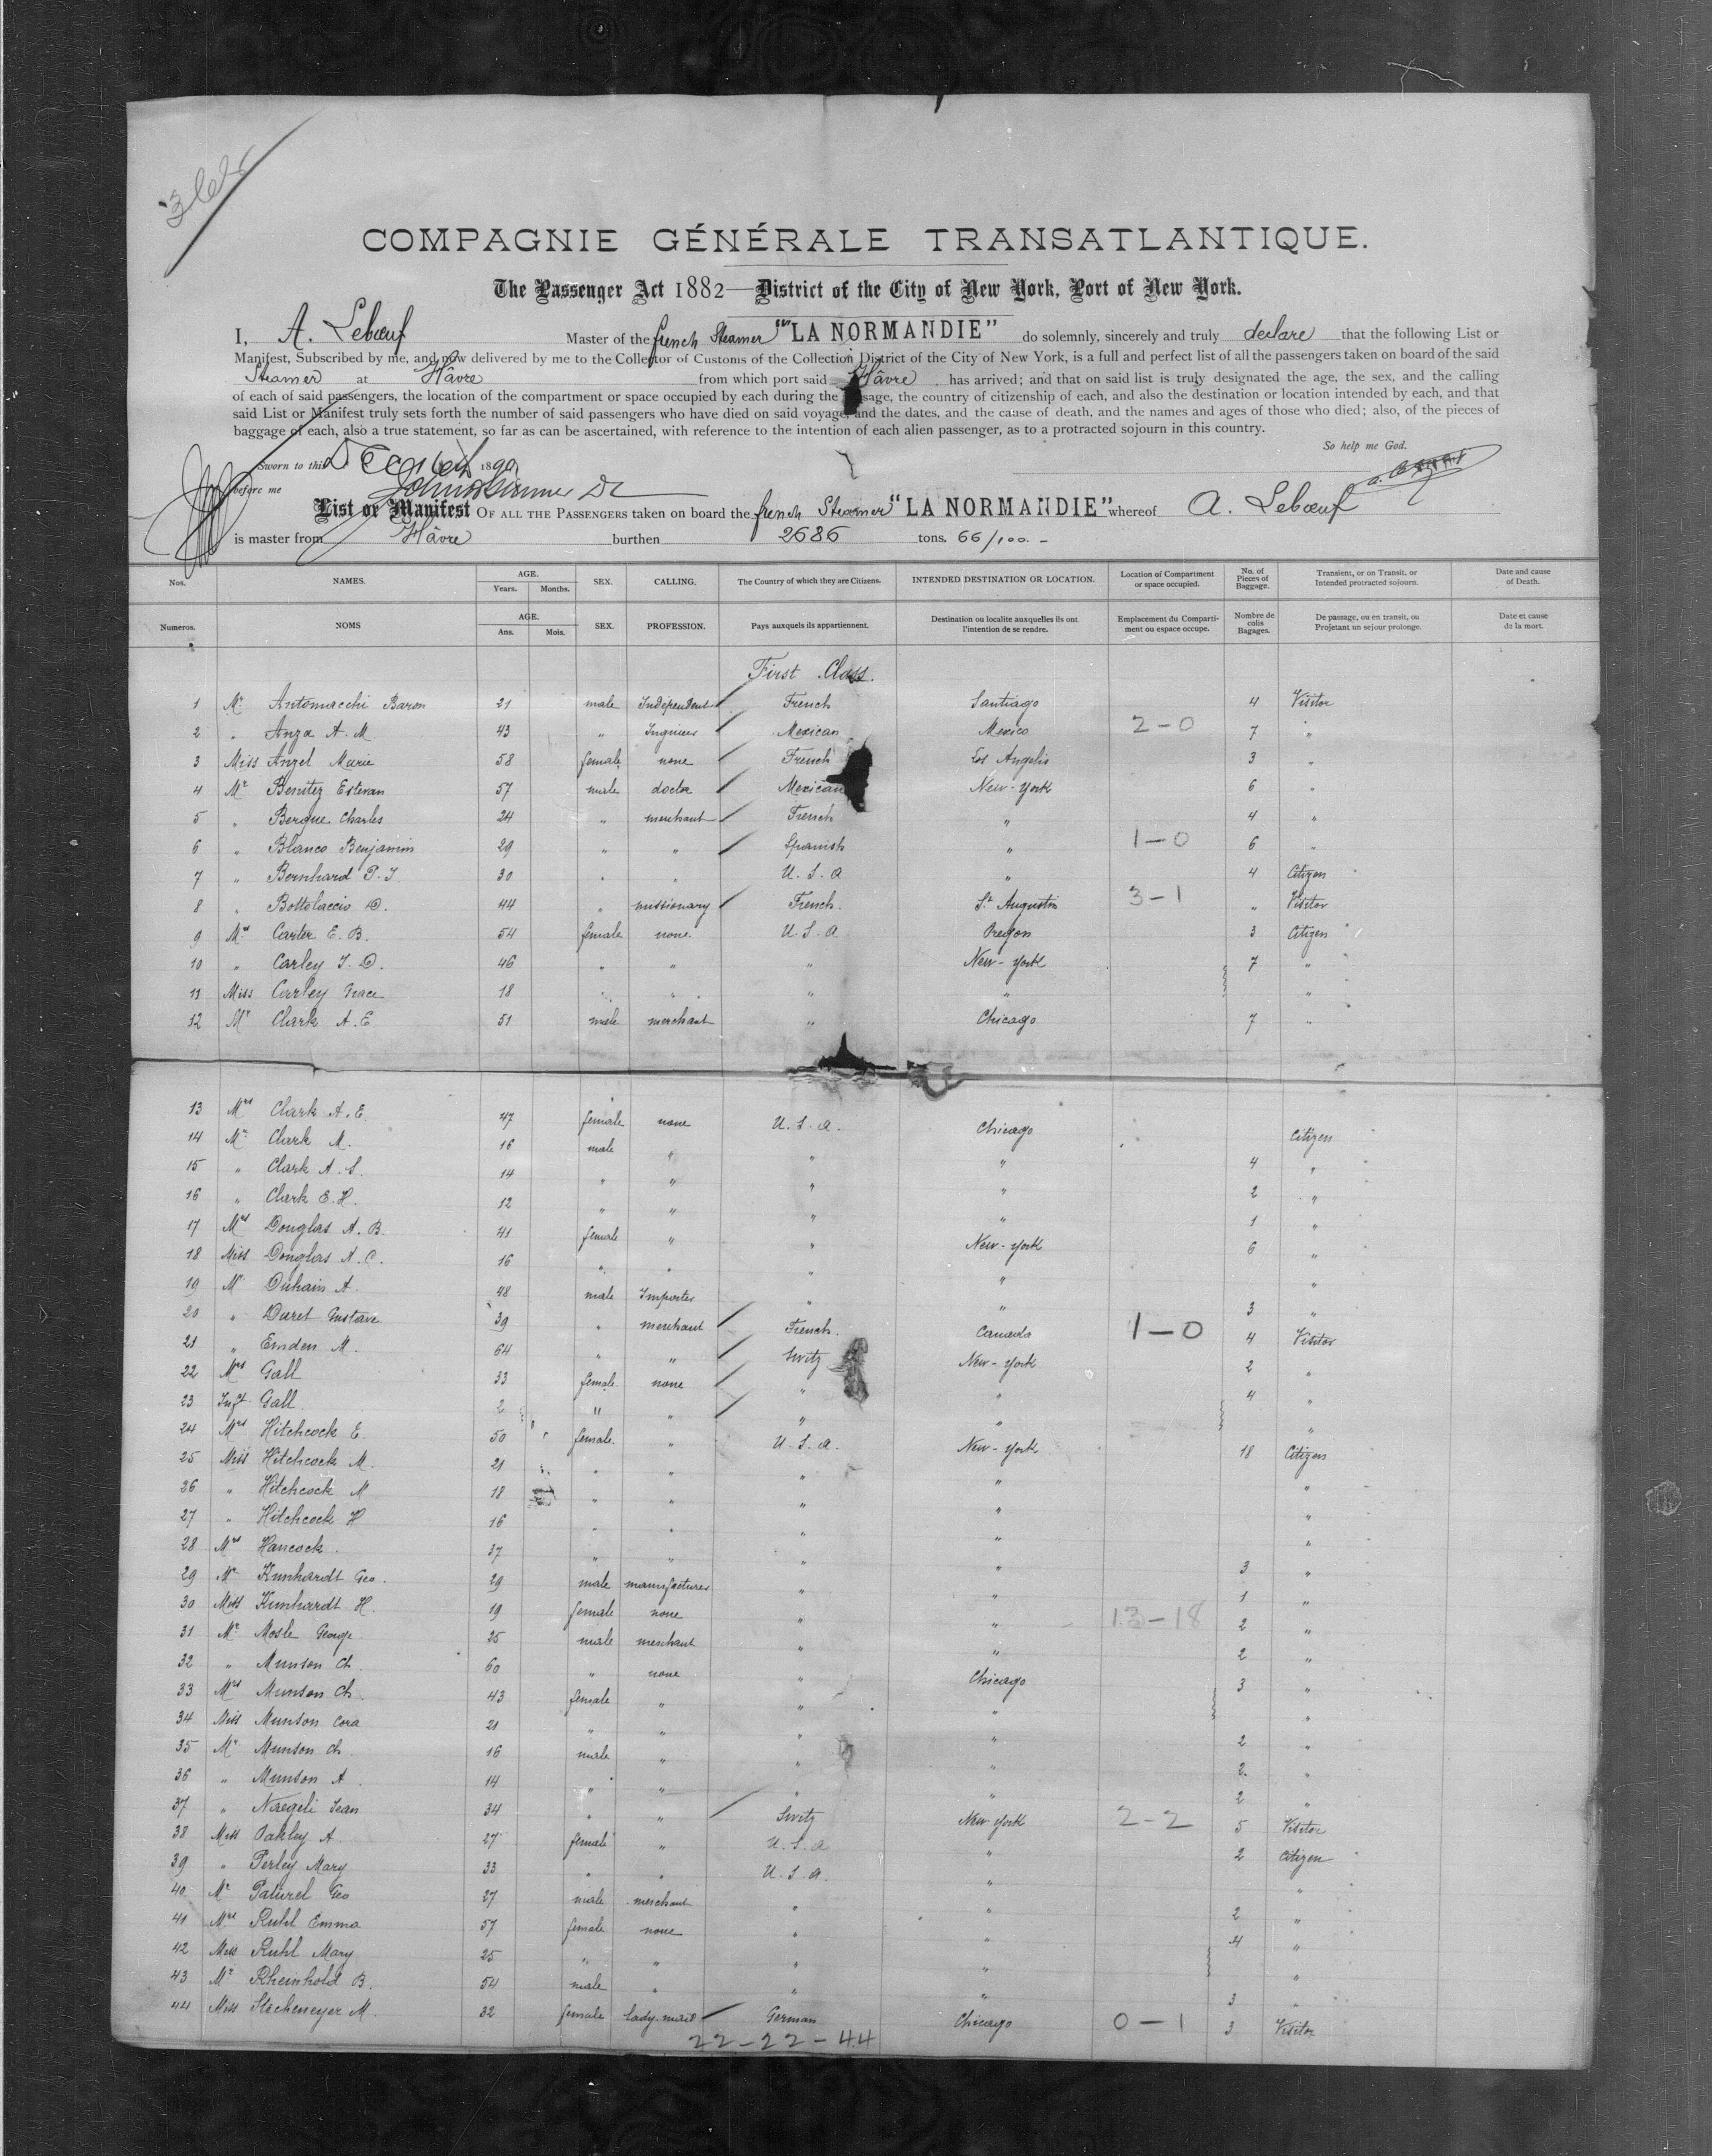 COMPAGNIE GÉNÉRALE TRANSATLANTIQUE.
The Passenger Act 1882—District of the City of New York, Port of New York.
I, A. Lebœuf Master of the french Steamer "LA NORMANDIE" do solemnly, sincerely and truly declare that the following List or
Manifest, Subscribed by me, and now delivered by me to the Collector of Customs of the Collection District of the City of New York, is a full and perfect list of all the passengers taken on board of the said
Steamer at Hâvre from which port said Hâvre has arrived; and that on said list is truly designated the age, the sex, and the calling
of each of said passengers, the location of the compartment or space occupied by each during the passage, the country of citizenship of each, and also the destination or location intended by each, and that
said List or Manifest truly sets forth the number of said passengers who have died on said voyage, and the dates, and the cause of death, and the names and ages of those who died; also, of the pieces of
baggage of each, also a true statement, so far as can be ascertained, with reference to the intention of each alien passenger, as to a protracted sojourn in this country.
So help me God.
Sworn to this 1890
before me
List or Manifest OF ALL THE PASSENGERS taken on board the french Steamer "LA NORMANDIE" whereof A. Lebœuf
is master from Hâvre burthen 2686 tons. 66/100. -
Nos. NAMES. AGE. Years. Months. SEX. CALLING. The Country of which they are Citizens. INTENDED DESTINATION OR LOCATION. Location of Compartment or space occupied. No. of Pieces of Baggage. Transient, or on Transit, or Intended protracted sojourn. Date and cause of Death.
Numeros. NOMS AGE. Ans. Mois. SEX. PROFESSION. Pays auxquels ils appartiennent. Destination ou localite auxquelles ils ont l'intention de se rendre. Emplacement du Comparti-ment ou espace occupe. Nombre de colis Bagages. De passage, ou en transit, ou Projetant un sejour prolonge. Date et cause de la mort.
First Class.
1 Mr Antomacchi Baron 21 male Independent French Santiago 4 Visitor
2 " Anza A. M. 43 " Ingineer Mexican Mexico 2-0 7 "
3 Miss Angel Marie 58 female none French Los Angelis 3 "
4 Mr Benitez Estevan 57 male doctor Mexican New-York 6 "
5 " Bergue Charles 24 " merchant French " 4 "
6 " Blanco Benjamin 29 " " Spanish " 1-0 6 "
7 " Bernhard P. J. 30 " " U. S. A " 4 Citizen
8 " Bottolaccio D. 44 " missionary French. St Augustin 3-1 " Visitor
9 Mrs Carter E. B. 54 female none U. S. A Oregon 3 Citizen
10 " Carley J. D. 46 " " " New-York 7 "
11 Miss Carley Grace 18 " " " " "
12 Mr Clark A. E. 51 male merchant " Chicago 7 "
13 Mrs Clark A. E. 47 female none U. S. A. Chicago Citizen
14 Mr Clark M. 16 male " " " 4 "
15 " Clark A. S. 14 " " " " 2 "
16 " Clark E. H. 12 " " " " 1 "
17 Mrs Douglas A. B. 41 female " " New-York 6 "
18 Miss Douglas A. C. 16 " " " " "
19 Mr Duhain A. 48 male Importer " " 3 "
20 " Duret Gustave 39 " merchant French. Canada 1-0 4 Visitor
21 " Emden M. 64 " " Switz New-York 2 "
22 Mrs Gall 33 female none " " 4 "
23 Inft Gall 2 " " " " "
24 Mrs Hitchcock E. 50 female. " U. S. A. New-York 18 Citizen
25 Miss Hitchcock M. 21 " " " " "
26 " Hitchcock M 18 " " " " "
27 " Hitchcock H 16 " " " " "
28 Mrs Hancock. 37 " " " " 3 "
29 Mr Kunhardt Geo. 29 male manufacturer " " 1 "
30 Miss Kunhardt H. 19 female none " " 13-18 2 "
31 Mr Mosle George 25 male merchant " " 2 "
32 " Munson Ch. 60 " none " Chicago 3 "
33 Mrs Munson Ch. 43 female " " " "
34 Miss Munson Cora 21 " " " " 2 "
35 Mr Munson Ch. 16 male " " " 2 "
36 " Munson A 14 " " " " 2 "
37 " Naegeli Jean 34 " " Switz New-York 2-2 5 Visitor
38 Miss Oakley A 27 female " U. S. A " 2 Citizen
39 " Perley Mary 33 " " U. S. A. " "
40 Mr Paturel Geo 27 male merchant " " 2 "
41 Mrs Ruhl Emma 57 female none " " 4 "
42 Miss Ruhl Mary 25 " " " " "
43 Mr Rheinhold B. 54 male " " " 3 "
44 Miss Stockemeyer M. 32 female lady-maid German Chicago 0-1 3 Visitor
22-22-44